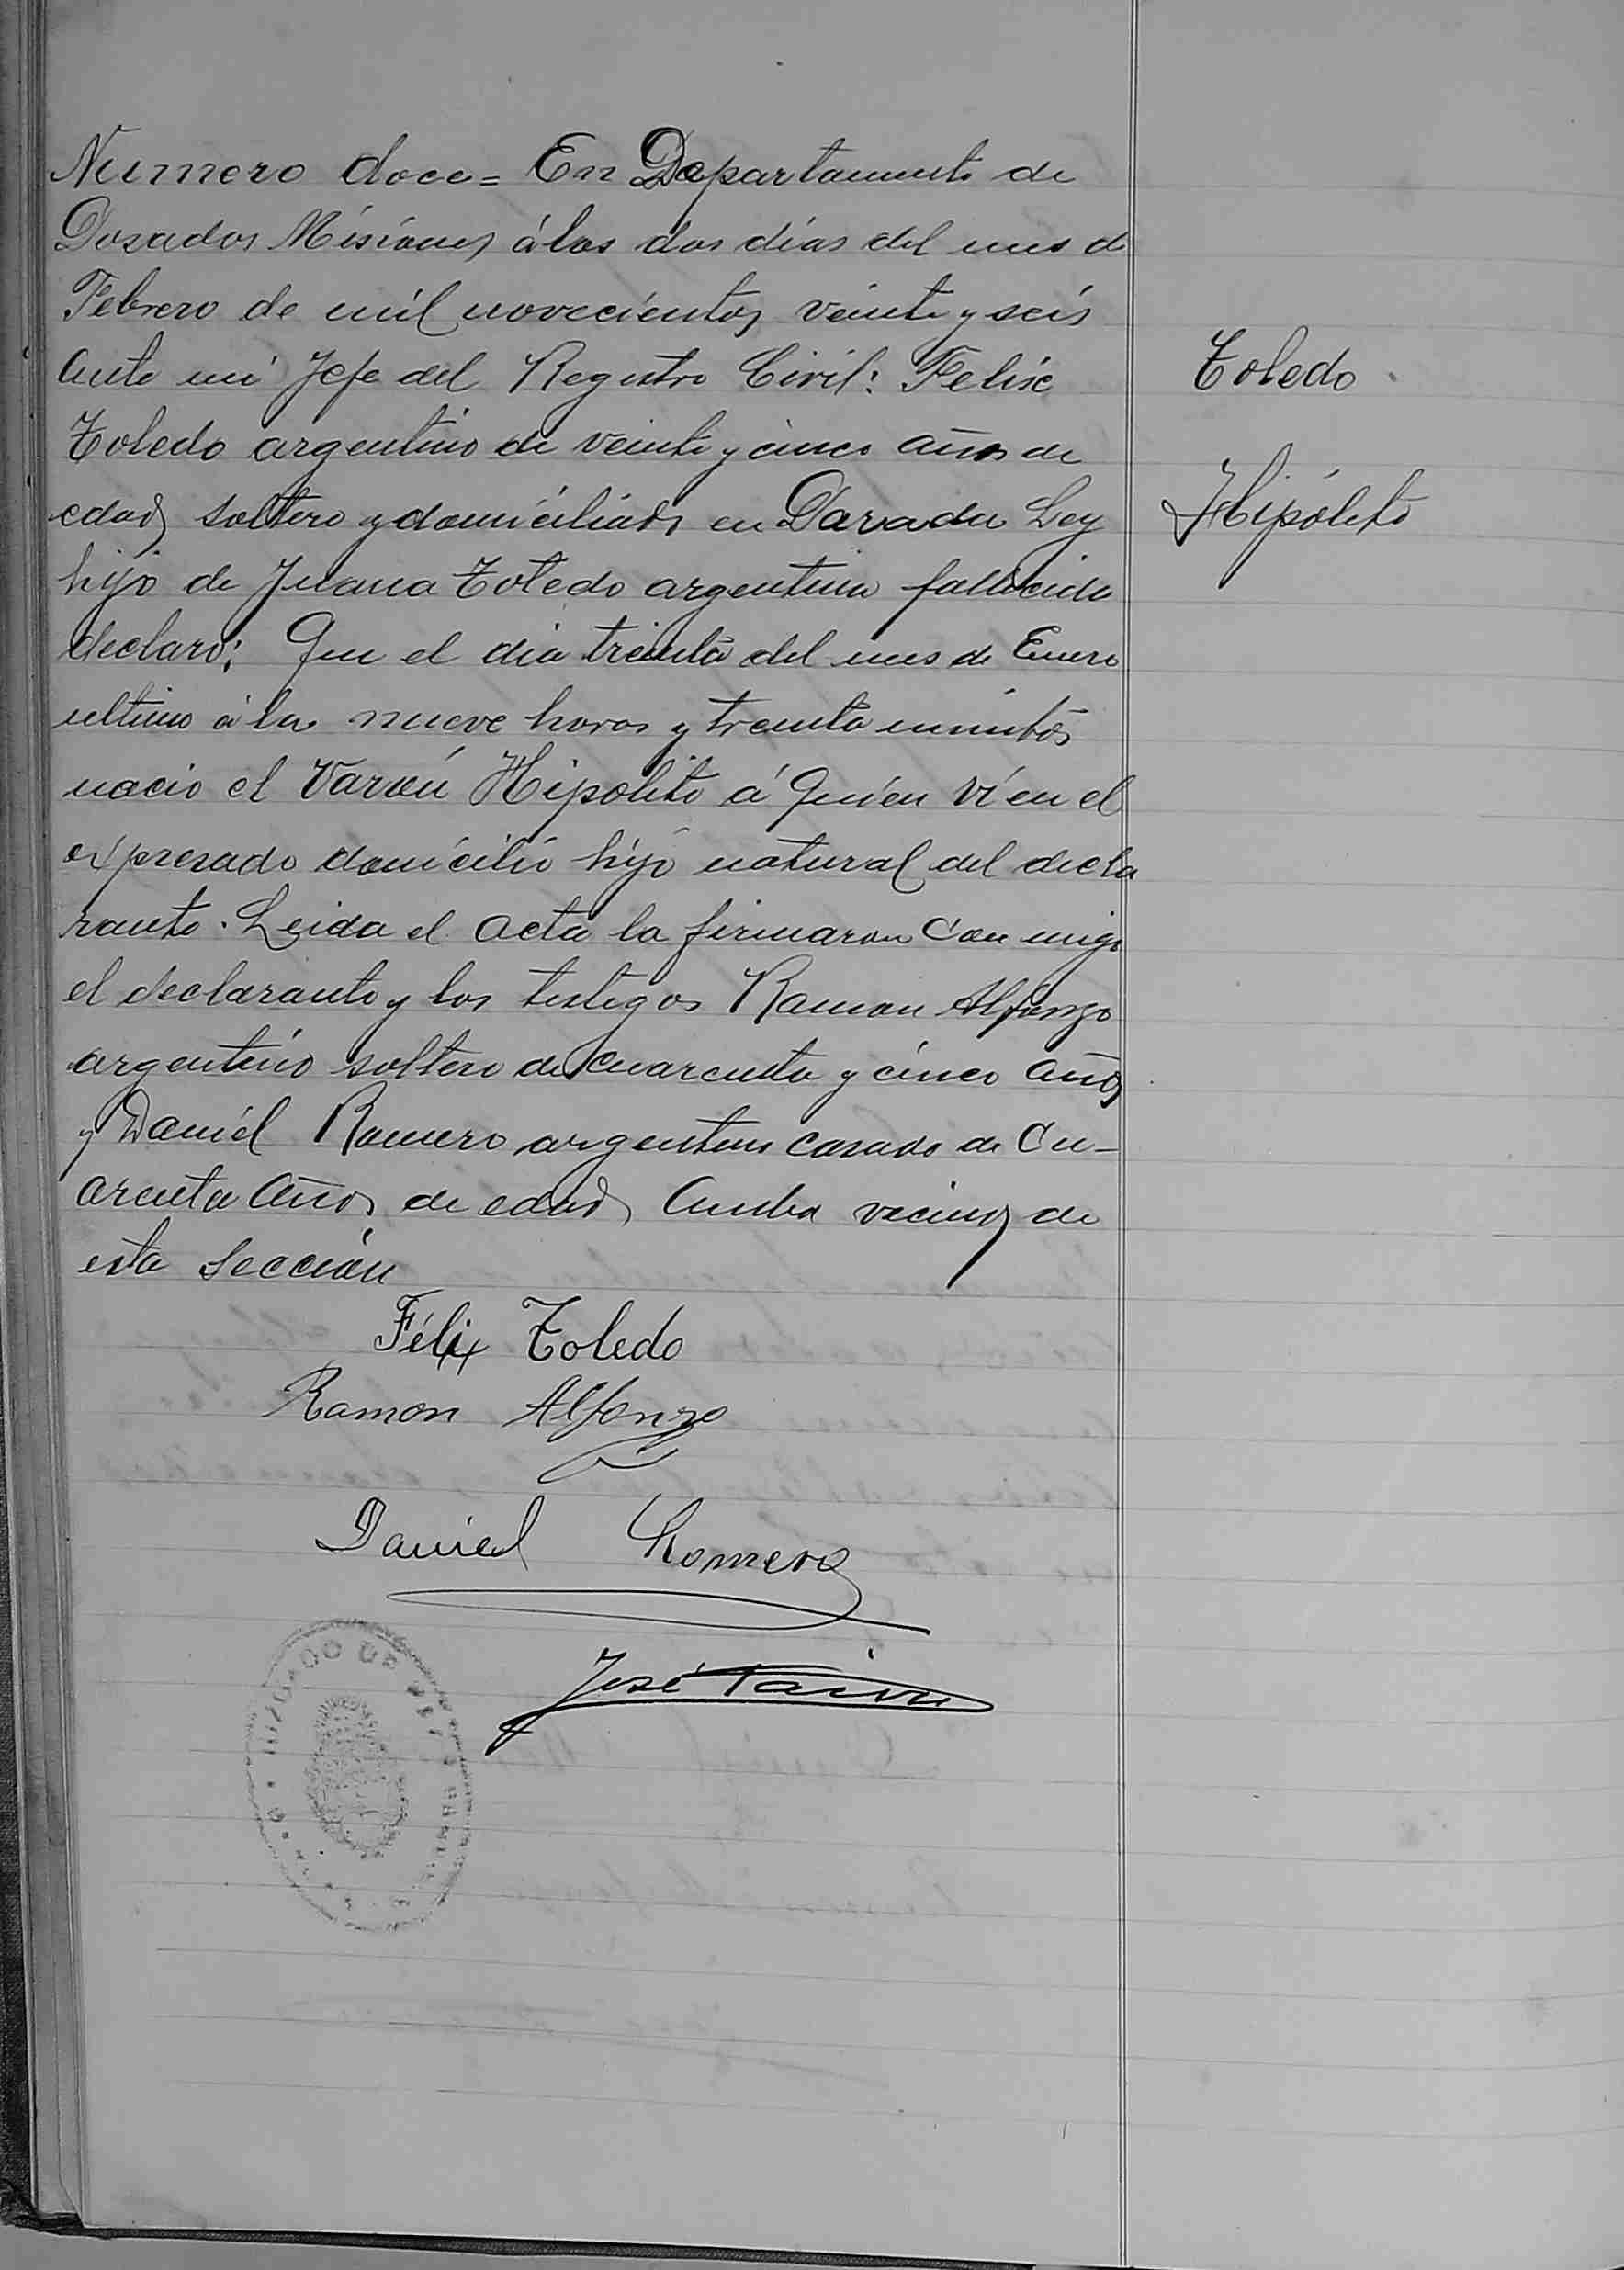 Numero doce = En Departamento de
Posadas Misiones á los dos días del mes de
Febrero de mil novecientos veinte y seis
Ante mi Jefe del Registro Civil: Felix
Toledo argentino de veinte y cinco años de
edad soltero y domiciliado en Parada Ley
hijo de Juana Toledo argentina fallecida
declaró: Que el dia treinta del mes de Enero
ultimo á las nueve horas y treinta minutos
nacio el Varón Hipolito á quien ví en el
expresado domicilio hijo natural del decla
rante. Leida el acta la firmaron con migo
el declarante y los testigos Ramon Alfonzo
argentino soltero de cuarenta y cinco años
y Daniel Romero argentino casado de Cu-
arenta años de edad Ambos vecinos de
esta Sección
Félix Toledo
Ramon Alfonzo
Daniel Romero
José
JUZGADO DE PAZ
Toledo
Hipólito